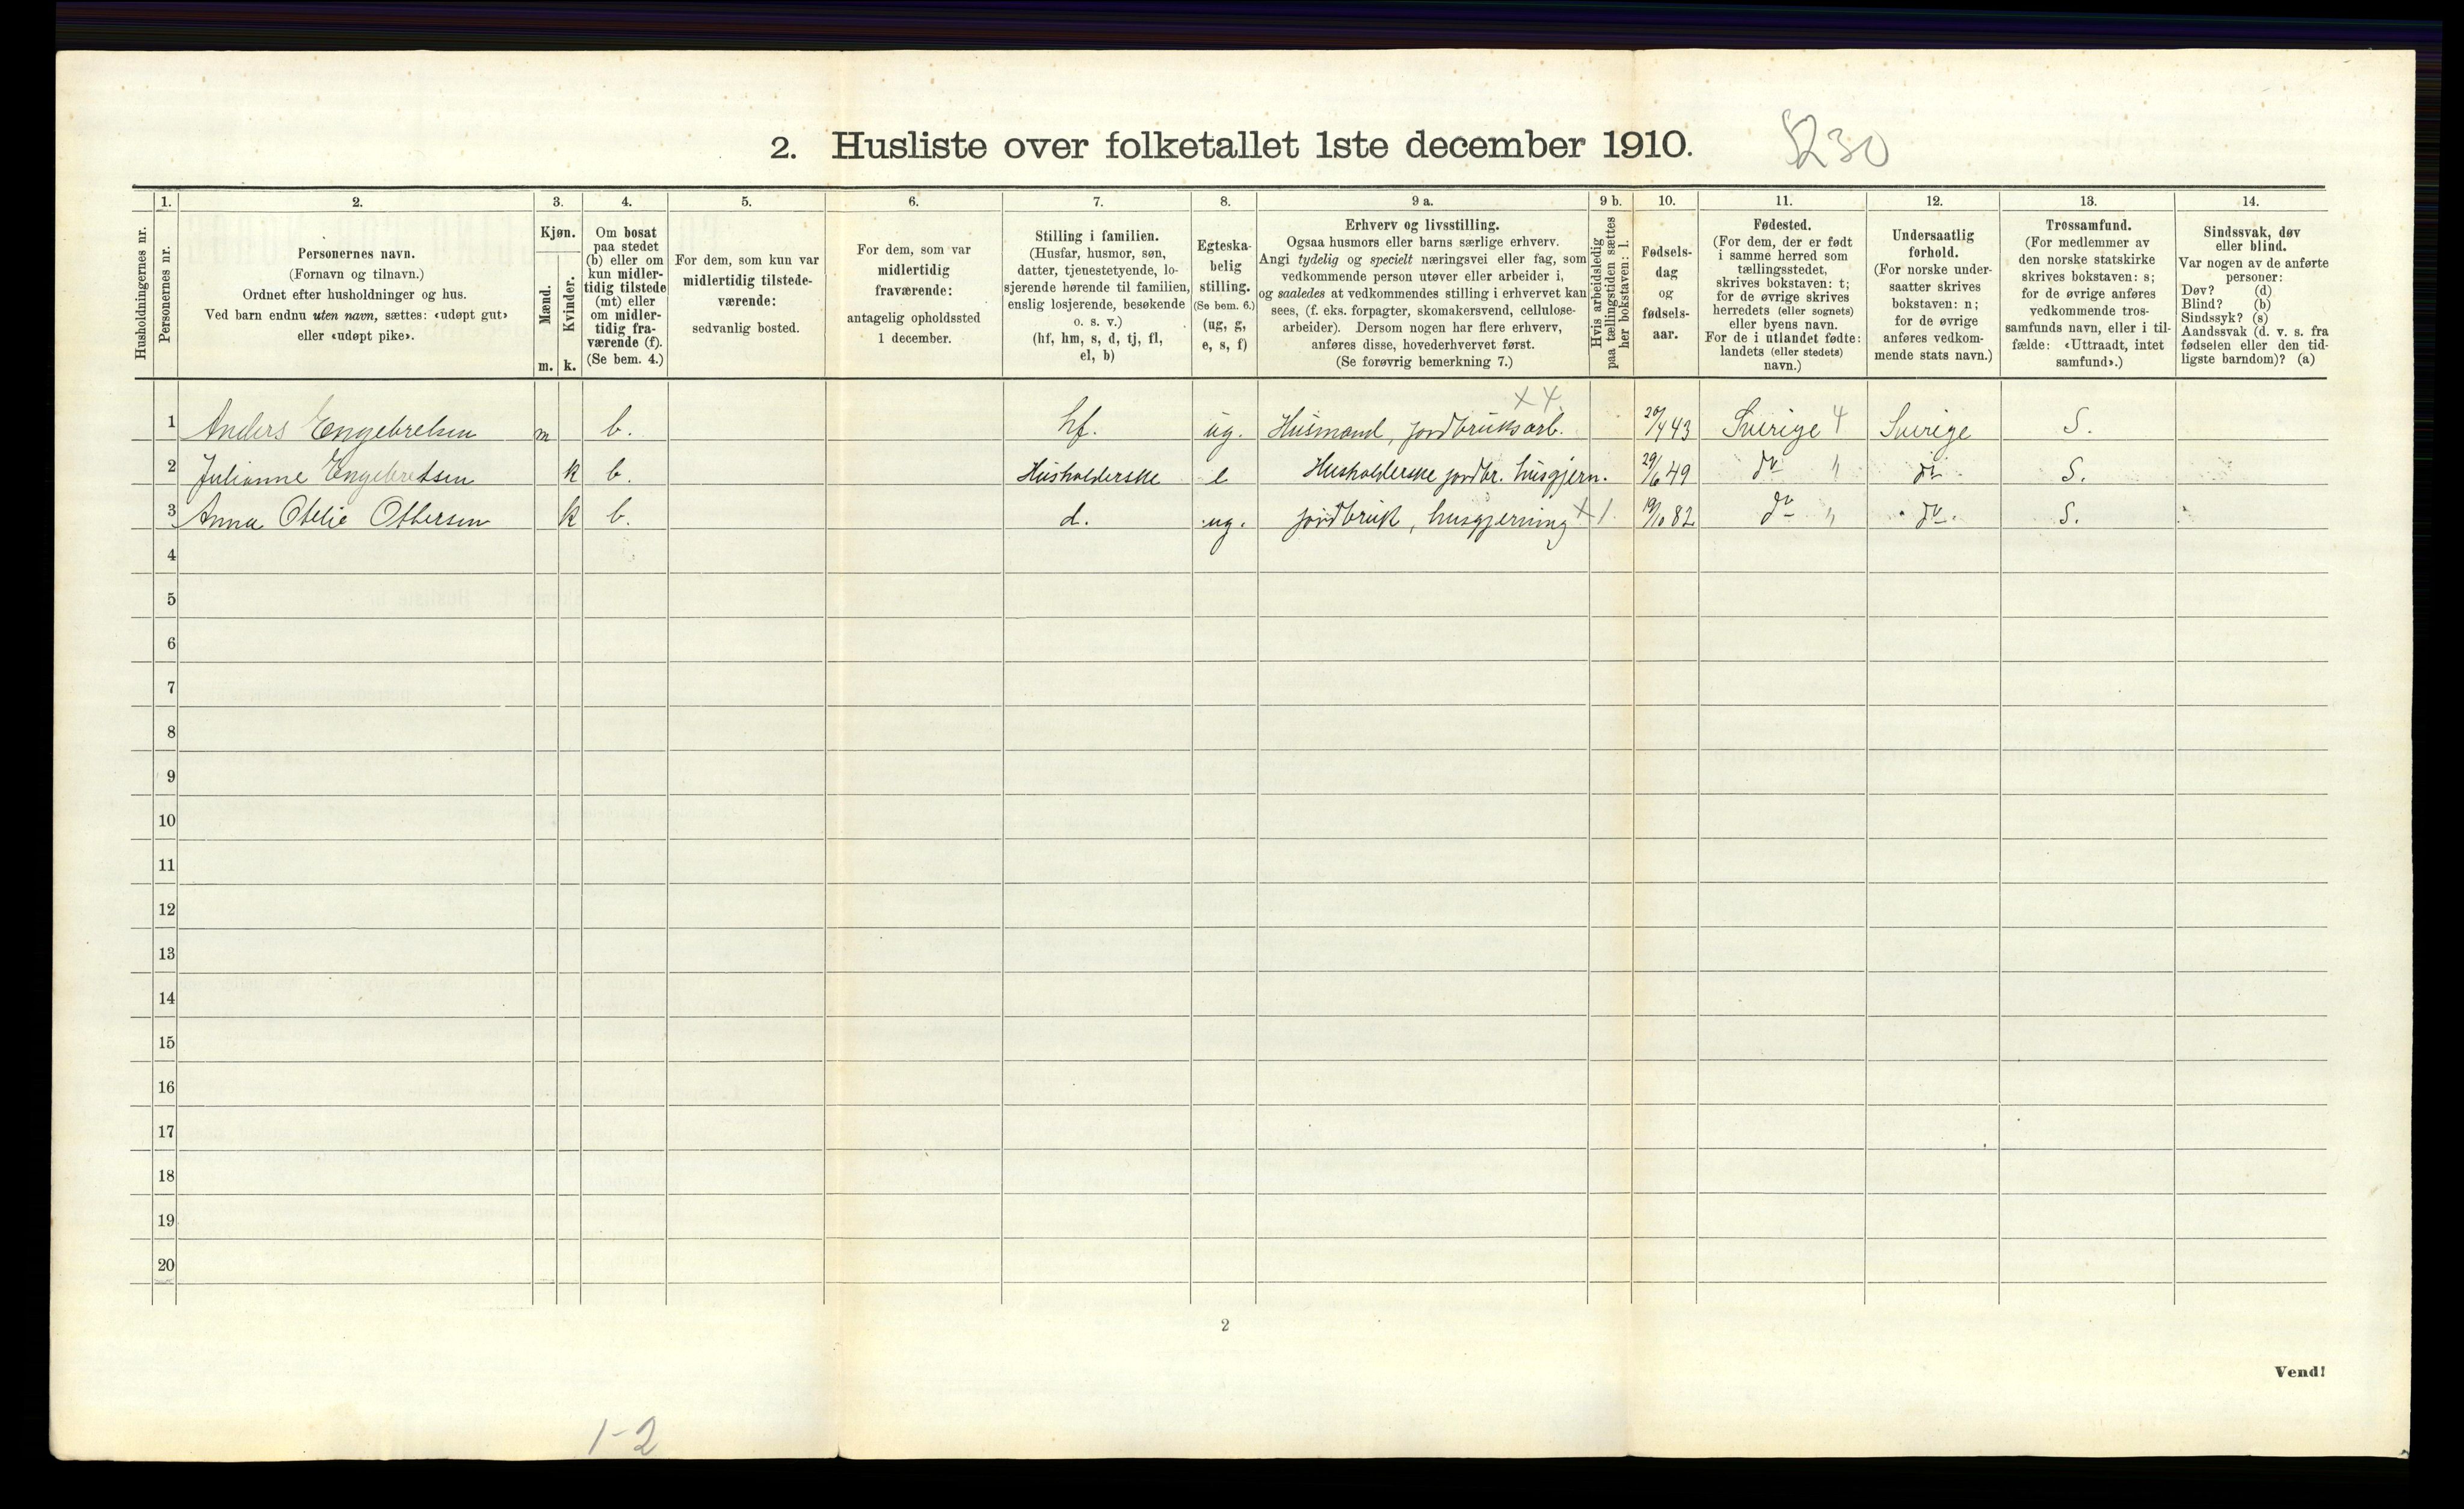 2. Husliste over folketallet 1ste december 1910.
8230
Husholdningernes nr.
1. Personernes nr.
2. Personernes navn.
(Fornavn og tilnavn.)
Ordnet efter husholdninger og hus.
Ved barn endnu uten navn, sættes: «udøpt gut»
eller «udøpt pike».
3. Kjøn.
Mænd. m.
Kvinder. k.
4. Om bosat
paa stedet
(b) eller om
kun midler-
tidig tilstede
(mt) eller
om midler-
tidig fra-
værende (f).
(Se bem. 4.)
5. For dem, som kun var
midlertidig tilstede-
værende:
sedvanlig bosted.
6. For dem, som var
midlertidig
fraværende:
antagelig opholdssted
1 december.
7. Stilling i familien.
(Husfar, husmor, søn,
datter, tjenestetyende, lo-
sjerende hørende til familien,
enslig losjerende, besøkende
o. s. v.)
(hf, hm, s, d, tj, fl,
el, b)
8. Egteska-
belig
stilling.
(Se bem. 6.)
(ug, g,
e, s, f)
9 a. Erhverv og livsstilling.
Ogsaa husmors eller barns særlige erhverv.
Angi tydelig og specielt næringsvei eller fag, som
vedkommende person utøver eller arbeider i,
og saaledes at vedkommendes stilling i erhvervet kan
sees, (f. eks. forpagter, skomakersvend, cellulose-
arbeider). Dersom nogen har flere erhverv,
anføres disse, hovederhvervet først.
(Se forøvrig bemerkning 7.)
9 b. Hvis arbeidsledig
paa tællingstiden sættes
her bokstaven: l.
10. Fødsels-
dag
og
fødsels-
aar.
11. Fødested.
(For dem, der er født
i samme herred som
tællingsstedet,
skrives bokstaven: t;
for de øvrige skrives
herredets (eller sognets)
eller byens navn.
For de i utlandet fødte:
landets (eller stedets)
navn.)
12. Undersaatlig
forhold.
(For norske under-
saatter skrives
bokstaven: n;
for de øvrige
anføres vedkom-
mende stats navn.)
13. Trossamfund.
(For medlemmer av
den norske statskirke
skrives bokstaven: s;
for de øvrige anføres
vedkommende tros-
samfunds navn, eller i til-
fælde: «Uttraadt, intet
samfund».)
14. Sindssvak, døv
eller blind.
Var nogen av de anførte
personer:
Døv? (d)
Blind? (b)
Sindssyk? (s)
Aandssvak (d. v. s. fra
fødselen eller den tid-
ligste barndom)? (a)
x 4
1 Anders Engebretsen m b. hf. ug. Husmand, jordbruksarb. 20/4 43 Sverige 4 Sverige S.
2 Julianne Engebretsen k b. Husholderske e Husholderske jordbr. husgjern. 29/6 49 do " do S.
3 Anna Otelie Ottersen k b. d. ug. jordbruk, husgjerning x 1 19/10 82 do " do. S.
4
5
6
7
8
9
10
11
12
13
14
15
16
17
18
19
20
2
Vend!
1-2